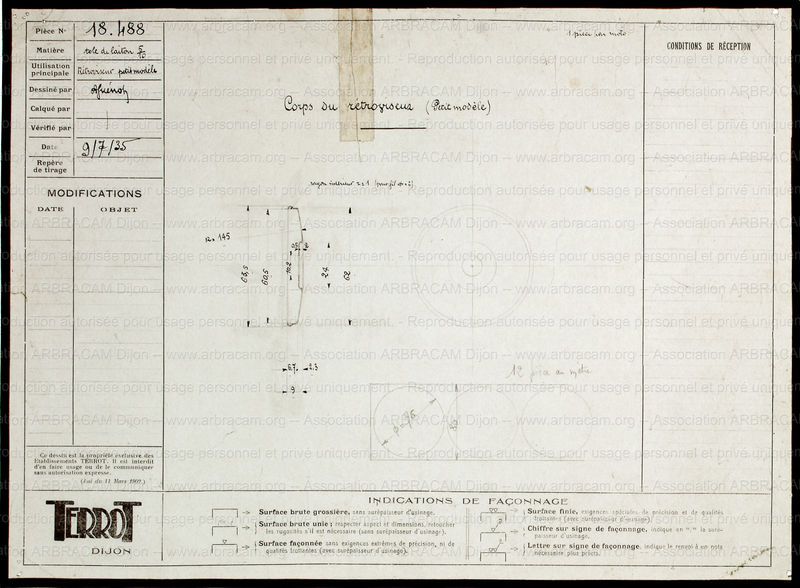 Pièce N° 18.488
Matière tole de laiton
Utilisation
principale Rétroviseur petit modèle
Dessiné par
Calqué par
Vérifié par
Date 9/7/35
Repère
de tirage
MODIFICATIONS
DATE OBJET
1 pièce par moto
CONDITIONS DE RÉCEPTION
Corps du rétroviseur (Petit modèle)
145
63,5
60,5
10,2
24
62
6,7
2,3
9
12 au mètre
Ce dessin est la propriété exclusive des
Etablissements TERROT. Il est interdit
d'en faire usage ou de le communiquer
sans autorisation expresse.
(Loi du 11 Mars 1902.)
TERROT
DIJON
INDICATIONS DE FAÇONNAGE
Surface brute grossière, sans surépaisseur d'usinage.
Surface brute unie ; respecter aspect et dimensions, retoucher
les rugosités s'il est nécessaire (sans surépaisseur d'usinage).
Surface façonnée sans exigences extrêmes de précision, ni de
qualités traitantes (avec surépaisseur d'usinage).
Surface finie, exigences spéciales de précision et de qualités
traitantes (avec surépaisseur d'usinage).
Chiffre sur signe de façonnage, indique en "." la surépaisseur d'usinage.
Lettre sur signe de façonnage, indique le renvoi à en nota
nécessaire plus précis.
Reproduction autorisée pour usage personnel et privé uniquement. - Reproduction autorisée pour usage personnel et privé uniquement.
www.arbracam.org -- Association ARBRACAM Dijon -- www.arbracam.org -- Association ARBRACAM Dijon